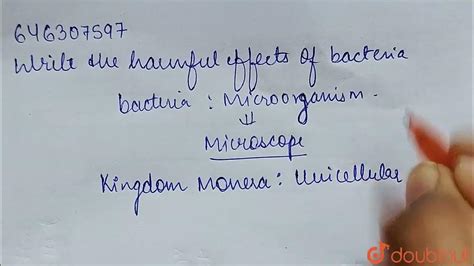 646307597
Write the harmful effects of bacteria
bacteria : Microorganism.
⇓
Microscope
Kingdom Monera : Unicellular
doubtnut